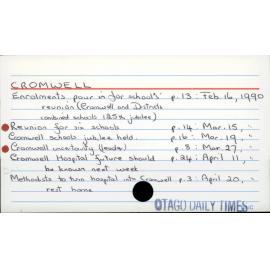 CROMWELL
Enrolments pour in for schools' p.13 : Feb. 16, 1990
reunion (Cromwell and Districts
combined schools 125th jubilee)
Reunion for six schools p.14 : Mar. 15, "
Cromwell schools jubilee held. p.16 : Mar. 19, "
Cromwell uncertainty (leader) p.8 : Mar. 27, "
Cromwell Hospital future should p.24 : April 11, "
be known next week
Methodists to turn hospital into Cromwell p.3 : April 20, "
rest home
OTAGO DAILY TIMES